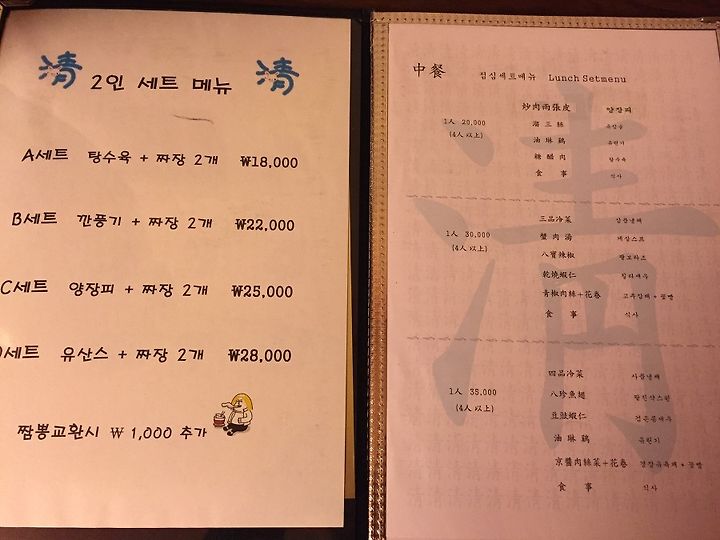 清 2인 세트 메뉴 清
A세트 탕수육 + 짜장 2개 ₩18,000
B세트 깐풍기 + 짜장 2개 ₩22,000
C세트 양장피 + 짜장 2개 ₩25,000
세트 유산스 + 짜장 2개 ₩28,000
짬뽕교환시 ₩ 1,000 추가
中餐 점심세트메뉴 Lunch Setmenu
炒肉兩張皮 양장피
1人 20,000 溜三絲 유산슬
(4人 以上) 油琳鷄 유린기
糖醋肉 탕수육
食 事 식사
三品冷菜 삼품냉채
1人 30,000 蟹肉湯 게살스프
(4人 以上) 八寶辣椒 팔보라조
乾燒蝦仁 칠리새우
青椒肉絲+花卷 고추잡채 + 꽃빵
食 事 식사
四品冷菜 사품냉채
1人 35,000 八珍魚翅 팔진삭스핀
(4人 以上) 豆豉蝦仁 검은콩새우
油琳鷄 유린기
京醬肉絲菜+花卷 경장유육채 + 꽃빵
食 事 식사
清